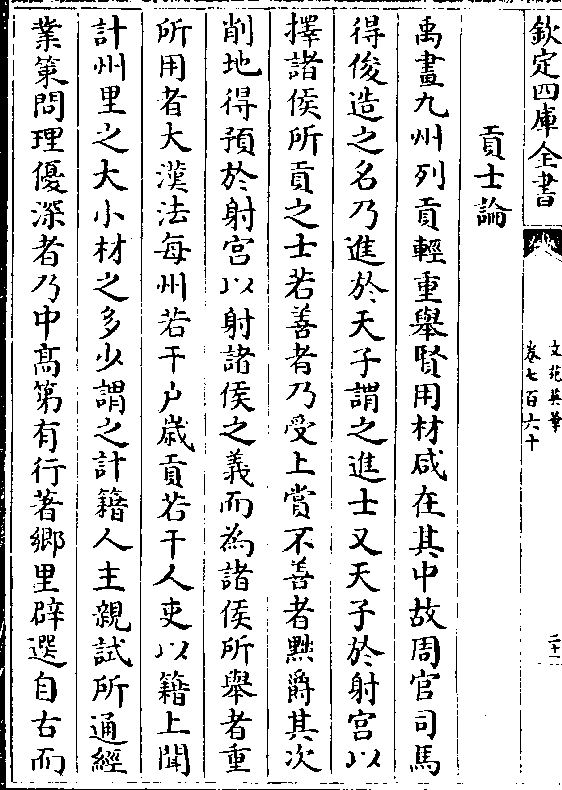 欽定四庫全書
文苑英華
卷七百六十
二十一
貢士論
禹畫九州列貢輕重舉賢用材咸在其中故周官司馬
得俊造之名乃進於天子謂之進士又天子於射宫以
擇諸侯所貢之士若善者乃受上賞不善者黜爵其次
削地得預於射宫以射諸侯之義而為諸侯所舉者重
所用者大漢法每州若干户嵗貢若干人吏以籍上聞
計州里之大小材之多少謂之計籍人主親試所通經
業策問理優深者乃中髙第有行著鄉里辟選自右而